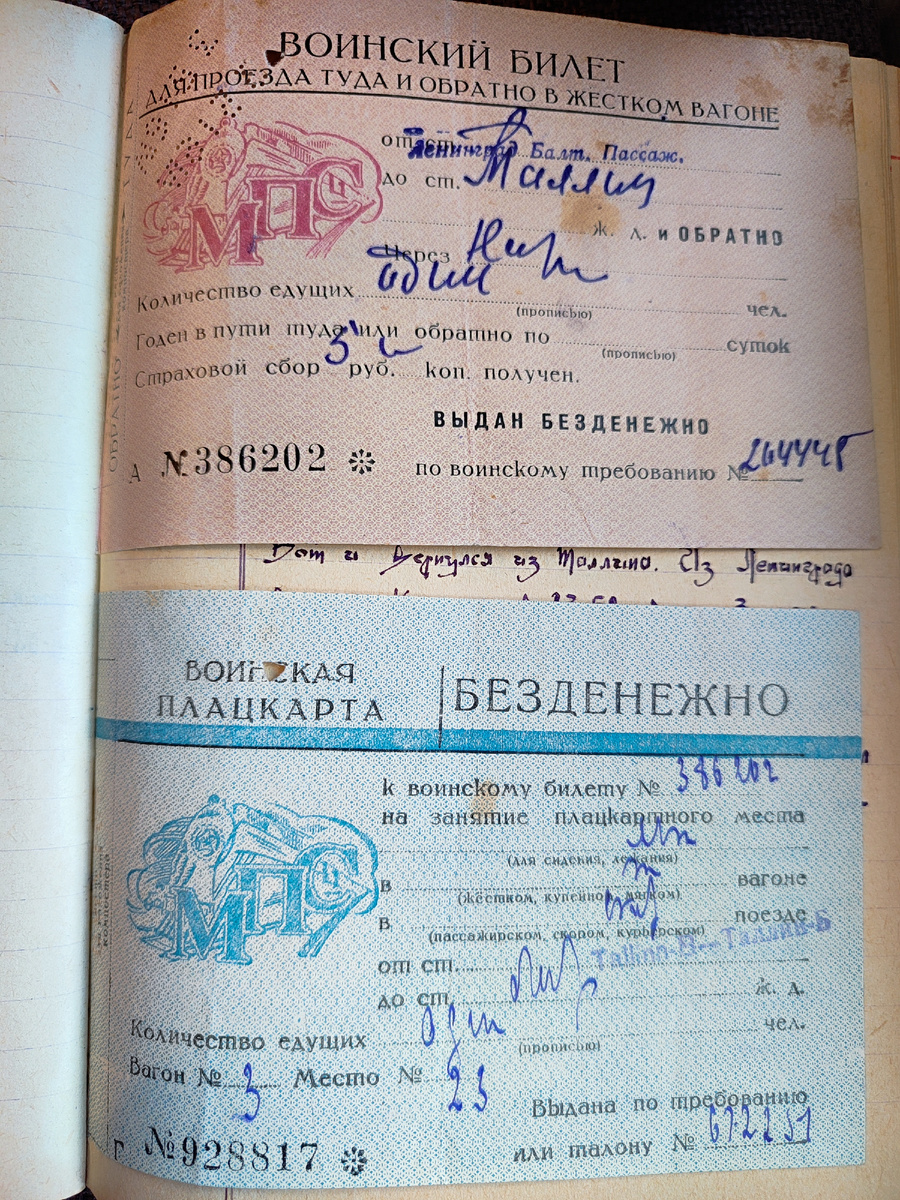 ВОИНСКИЙ БИЛЕТ
ДЛЯ ПРОЕЗДА ТУДА И ОБРАТНО В ЖЕСТКОМ ВАГОНЕ
МПС
от ст. Ленинград Балт. Пассаж.
до ст. Таллин
ж. д. и ОБРАТНО
Через
Количество едущих один чел.
(прописью)
Годен в пути туда или обратно по суток
(прописью)
Страховой сбор руб. коп. получен.
ВЫДАН БЕЗДЕНЕЖНО
А №386202
по воинскому требованию № 264445
ОБРАТНО
Вот и вернулся из Таллина. Из Ленинграда
ВОИНСКАЯ ПЛАЦКАРТА
БЕЗДЕНЕЖНО
к воинскому билету № 386202
на занятие плацкартного места
(для сидения, лежания)
МПС
в вагоне
(жёстком, купейном, мягком)
в поезде
(пассажирском, скором, курьерском)
от ст. Tallinn-B—Таллин-Б
до ст. ж. д.
Количество едущих один чел.
(прописью)
Вагон № 3 Место № 23
Выдана по требованию
или талону № 672231
Г №928817